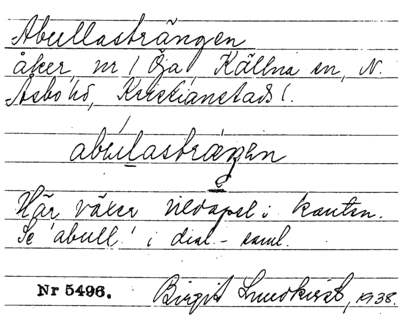 Abullasträngen
åker, nr 1 Öja, Källna sn, N.
Åsbo hd, Kristianstads l.
abulastrạŋen
Här växer vildapel i kanten.
Se 'abull' i dial.-saml.
Nr 5496. Birgit Lundkvist, 1938.